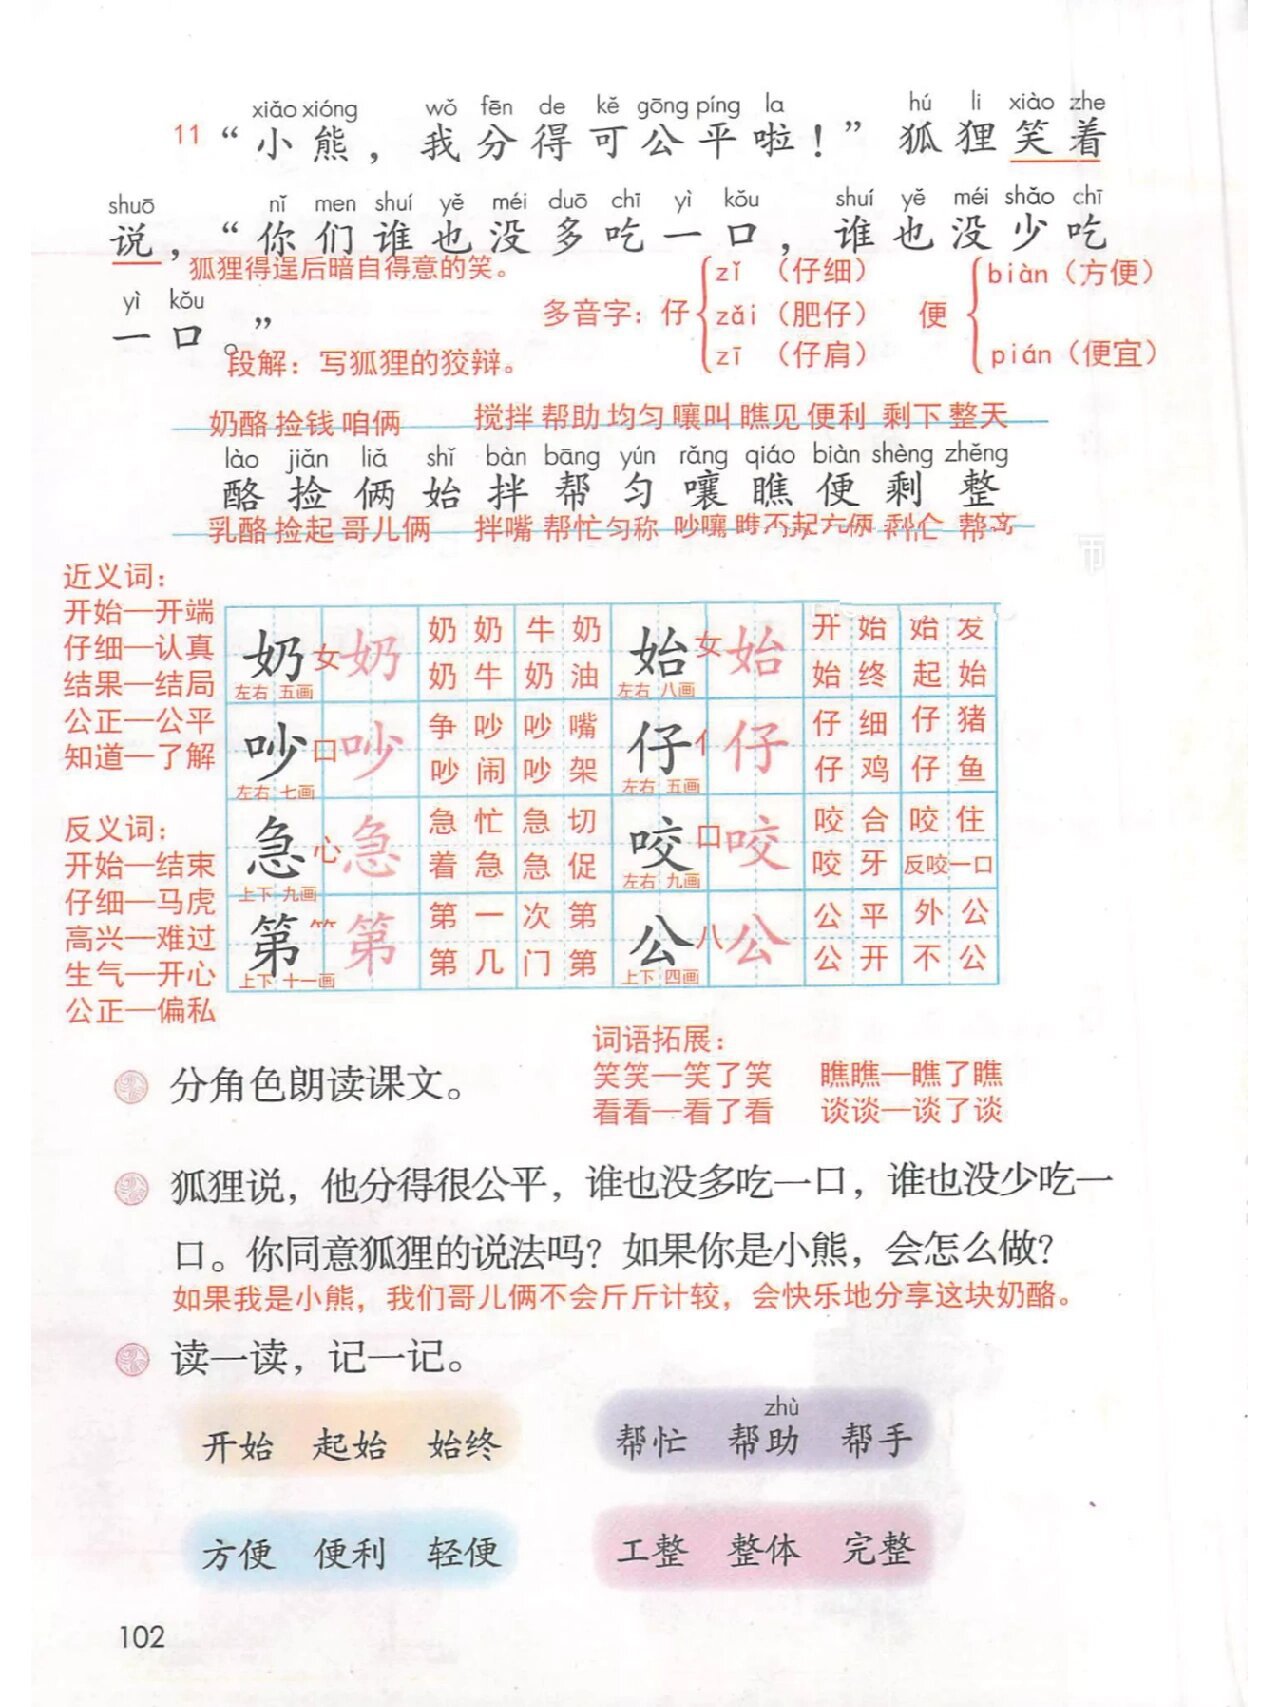 xiǎo xióng wǒ fēn de kě gōng píng la hú li xiào zhe
11 “小熊，我分得可公平啦！”狐狸笑着
shuō nǐ men shuí yě méi duō chī yì kǒu shuí yě méi shǎo chī
说，“你们谁也没多吃一口，谁也没少吃
狐狸得逞后暗自得意的笑。
yì kǒu
一口。”
段解：写狐狸的狡辩。
多音字：仔 zǐ（仔细） zǎi（肥仔） zī（仔肩）
便 biàn（方便） pián（便宜）
奶酪 捡钱 咱俩 搅拌 帮助 均匀 嚷叫 瞧见 便利 剩下 整天
lào jiǎn liǎ shǐ bàn bāng yún rǎng qiáo biàn shèng zhěng
酪 捡 俩 始 拌 帮 匀 嚷 瞧 便 剩 整
乳酪 捡起 哥儿俩 拌嘴 帮忙 匀称 吵嚷 瞧不起
近义词：
开始—开端
仔细—认真
结果—结局
公正—公平
知道—了解
反义词：
开始—结束
仔细—马虎
高兴—难过
生气—开心
公正—偏私
奶 女 奶 奶奶 牛奶 始 女 始 开始 始发
左右 五画 奶牛 奶油 左右 八画 始终 起始
吵 口 吵 争吵 吵嘴 仔 亻 仔 仔细 仔猪
左右 七画 吵闹 吵架 左右 五画 仔鸡 仔鱼
急 心 急 急忙 急切 咬 口 咬 咬合 咬住
上下 九画 着急 急促 左右 九画 咬牙 反咬一口
第 ⺮ 第 第一 次第 公 八 公 公平 外公
上下 十一画 第几 门第 上下 四画 公开 不公
词语拓展：
笑笑—笑了笑 瞧瞧—瞧了瞧
看看—看了看 谈谈—谈了谈
分角色朗读课文。
狐狸说，他分得很公平，谁也没多吃一口，谁也没少吃一
口。你同意狐狸的说法吗？如果你是小熊，会怎么做？
如果我是小熊，我们哥儿俩不会斤斤计较，会快乐地分享这块奶酪。
读一读，记一记。
zhù
开始 起始 始终 帮忙 帮助 帮手
方便 便利 轻便 工整 整体 完整
102